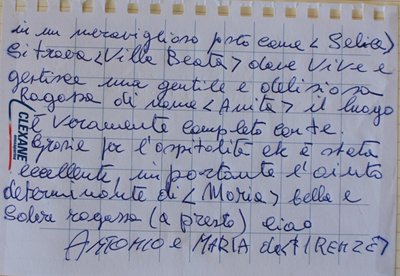 in un meraviglioso posto come <Selica>
si trova <Villa Beata> dove vive e
gestisce una gentile e deliziosa
Ragazza di nome <Anita> il luogo
è veramente completo con te.
Grazie per l'ospitalità che è stata
eccellente importante l'aiuto
determinante di <Maria> bella e
Solare ragazza (a presto) ciao
ANTONIO e MARIA da FIRENZE
CLEXANE